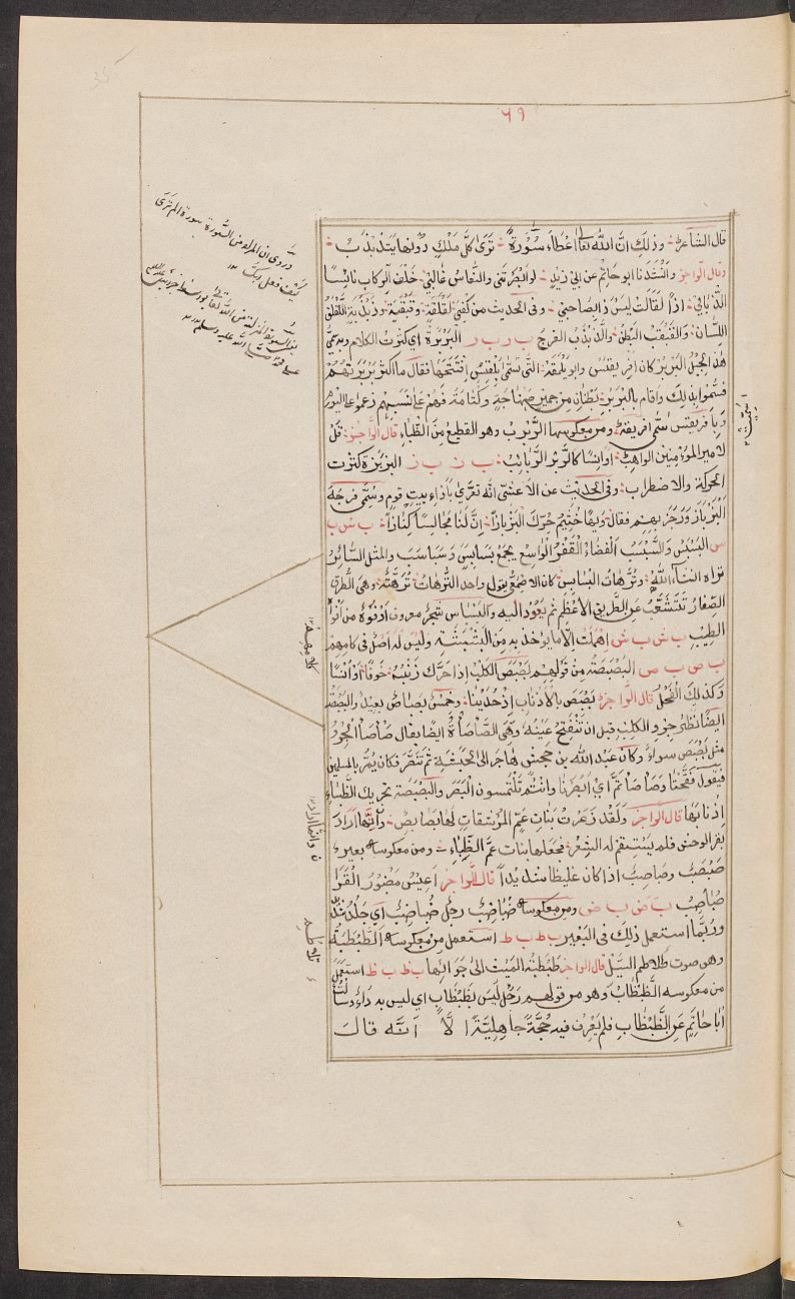 ٦٩
قال الشاعر وذلك ان الله اعطاك سورة ترى كل ملك دونها يتذبذب
وقال الراجز وانشدنا ابو حاتم عن ابي زيد لو ابصرتني والنعاس غالبي خلف الركاب نائسا
اذا لقالت ليس ذا بصاحبي وفي الحديث من كفي لقلقه وقبقبه وذبذبه اللقلق
اللسان والقبقب البطن والذبذب الفرج ب ر ب ر البربرة اي كثرت الكلام وبه سمي
هذا الجيل البربر كان افريقس وابو يلمقة التي تسمى بلقيس افتتحها فقال ما اكثر بربرتهم
فسموا بذلك واقام بالبربر بطنان من حمير صنهاجة وكتامة فهم على نسبهم زعموا الى اليوم
وبافريقيس سمي افريقية ومن معكوسها الربرب وهو القطيع من الظباء قال الراجز قل
لامير المؤمنين الواهب اوانسا كالربرب الربائب ب ز ب ز البزبزة كثرت
الحركة والاضطراب وفي الحديث عن الاعشى انه تعرى بازاء بيت قوم وسمى فرجه
البزباز ورجز بهم فقال ويها خثيم حرك البزبازا ان لنا مجالسا كنازا ب س ب
س البسبس والسبسب الفضاء القفر الواسع يجمع بسابس وسباسب والمثل السائر
وترهات البسابس كان الاصمعي يقول واحد الترهات ترهة وهي الطرق
الصغار تتشعب عن الطريق الاعظم ثم يعود اليه والبسباس شجر معروف من افواه
الطيب ب ش ب ش اهملت الا ما يؤخذ به من البشبشة وليس له اصل في كلامهم
ب ص ب ص البصبصة من قولهم بصبص الكلب اذا حرك ذنبه خوفا او انسا
وكذلك الفحل قال الراجز بصبص بالاذناب اذ حدينا وخمس بصباص بعيد والبصبصة
ايضا نظر جرو الكلب قبل ان تنفتح عينه وهي الصأصأة ايضا يقال صأصأ الجرو
مثل بصبص سواء وكان عبد الله بن جحش هاجر الى الحبشة ثم تنصر فكان يمر بالمسلمين
فيقول فقحنا وصأصأتم اي ابصرنا وانتم تلتمسون البصر والبصبصة تحريك الظباء
اذنابها قال الراجز ولقد ذعرت بنات عم المرشقات لها بصابص وانما اراد
بقر الوحش فلم يستقم له الشعر فجعلها بنات عم الظباء ومن معكوسه بعير
صبصب وصباصب اذا كان غليظا شديدا قال الراجز اعيس مضبور القرا
صباصب ب ض ب ض ومن معكوسه ضباضب رجل ضباضب اي جلد
وربما استعمل ذلك في البعير ب ط ب ط استعمل من معكوسه الطبطبة
وهو صوت تلاطم السيل قال الراجز طبطبة الميث الى جوائها ب ظ ب ظ استعمل
من معكوسه الظبظاب وهو من قولهم رجل ليس بظبظاب اي ليس به داء وسألت
ابا حاتم عن الظبظاب فلم يعرف فيه حجة جاهلية الا انه قال